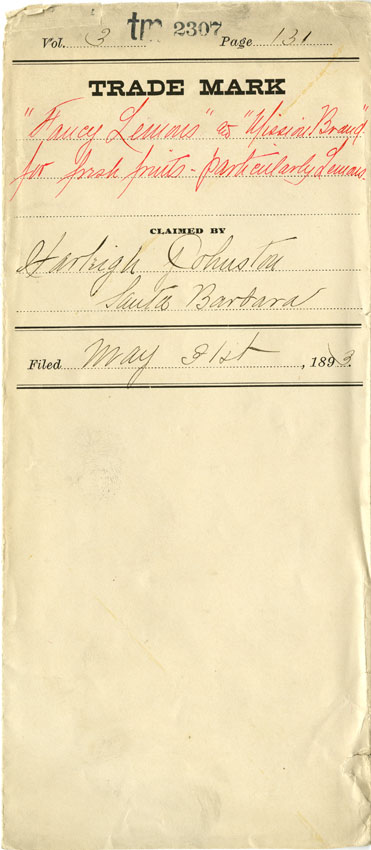 Vol. 3 tm 2307 Page 131
TRADE MARK
"Fancy Lemons" as "Mission Brand"
for fresh fruits - particularly Lemons.
CLAIMED BY
Harleigh Johnston
Santa Barbara
Filed May 31st, 1893.